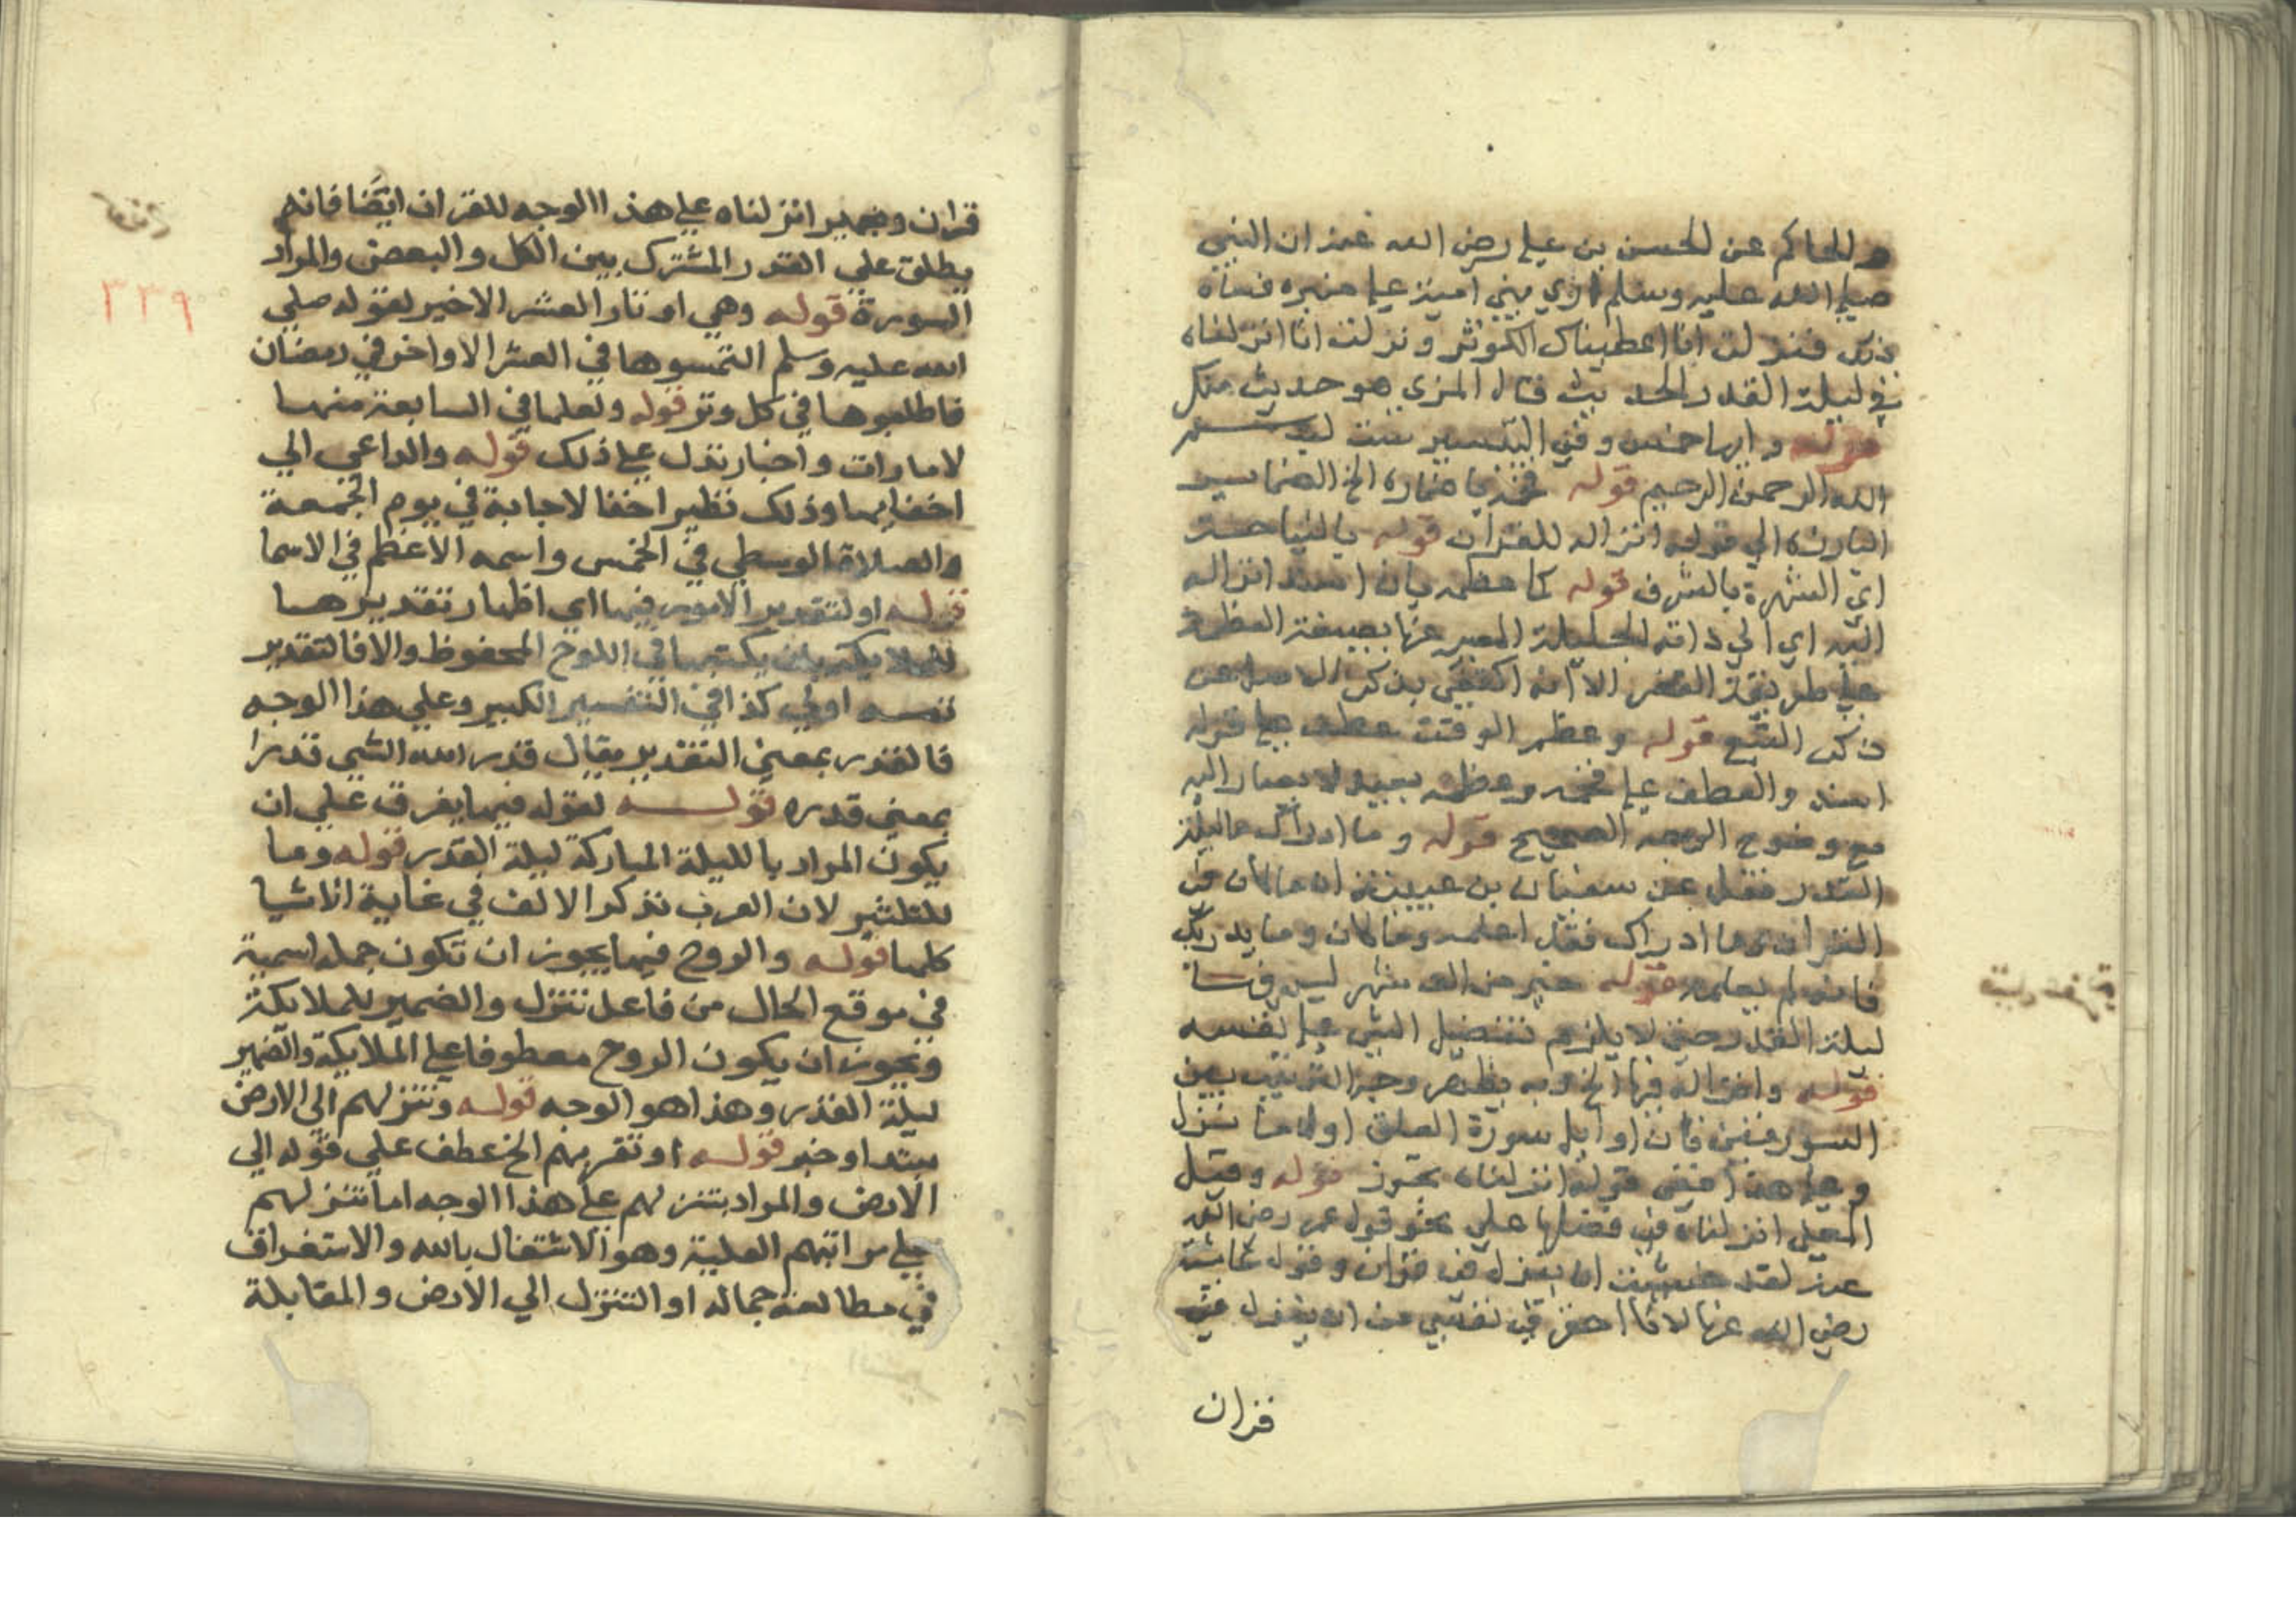 والحاكم عن الحسن بن علي رضي الله عنه ان النبي
صلى الله عليه وسلم اري بني امية على منبره فساه
ذلك فنزلت انا اعطيناك الكوثر ونزلت انا انزلناه
في ليلة القدر الحديث قال المزي هو حديث منكر
قوله وايها خمس وفي التيسير ست بسم
الله الرحمن الرحيم قوله فخمه باضماره الخ الضماير
البارزة الي قوله انزاله للقران قوله بالنباهة
اي الشهرة بالشرف قوله كما عظمه بان اسند انزاله
اليه اي الي ذاته الجليلة المعبر عنها بصيغة العظمة
علي طريقة القصر الا انه اكتفي بذكر الاصل عن
ذكر التبع قوله وعظم الوقت عطف علي قوله
اسند والعطف علي فخمه وعظمه بعيد لا يصار اليه
مع وضوح الوجه الصحيح قوله وما ادراك ما ليلة
القدر فنقل عن سفيان بن عيينة ان ما كان في
القران وما ادراك فقد اعلمه وما كان وما يدريك
فانه لم يعلمه قوله خير من الف شهر ليس فيها
ليلة القدر حتي لا يلزم تفضيل الشي علي نفسه
قوله وانزاله فيها الخ وبه يظهر وجه الترتيب بين
السورتين فان اوايل سورة العلق اول ما نزل
وعلي هذا ففي قوله انزلناه تجوز قوله وقيل
المعني انزلناه في فضلها علي نحو قول عمر رضي الله
عنه لقد خشيت ان ينزل في قران وقول عايشة
رضي الله عنها لانا احقر في نفسي من ان ينزل في
قران
قران وضمير انزلناه علي هذا الوجه للقران ايضا فانه
يطلق علي القدر المشترك بين الكل والبعض والمراد
السورة قوله وهي اوتار العشر الاخير لقوله صلي
الله عليه وسلم التمسوها في العشر الاواخر في رمضان
فاطلبوها في كل وتر قوله ولعلها في السابعة منها
لامارات واخبار تدل علي ذلك قوله والداعي الي
اخفايها وذلك نظير اخفا الاجابة في يوم الجمعة
والصلاة الوسطي في الخمس واسمه الاعظم في الاسما
قوله او لتقدير الامور فيها اي اظهار تقديرها
للملايكه بان يكتبها في اللوح المحفوظ والا فالتقدير
نفسه اولي كذا في التفسير الكبير وعلي هذا الوجه
فالقدر بمعني التقدير يقال قدر الله الشي قدرا
بمعني قدره قوله لقوله فيها يفرق علي ان
يكون المراد بالليلة المباركة ليلة القدر قوله وما
للتكثير لان العرب تذكر الالف في غاية الاشيا
كلها قوله والروح فيها يجوز ان تكون جملة اسمية
في موقع الحال من فاعل تنزل والضمير للملايكة
ويجوز ان يكون الروح معطوفا علي الملايكة والضمير
ليلة القدر وهذا هو الوجه قوله وتنزلهم الي الارض
مبتدا وخبر قوله او تقربهم الخ عطف علي قوله الي
الارض والمراد بتنزلهم علي هذا الوجه اما تنزلهم
علي مراتبهم العلية وهو الاشتغال بالله والاستغراق
في مطالعة جماله او التنزل الي الارض والمقابلة
٣٣٩